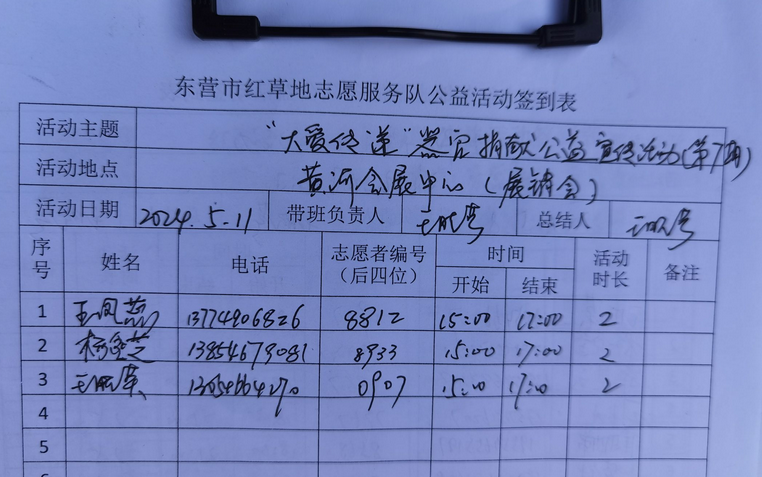 东营市红草地志愿服务队公益活动签到表
活动主题 "大爱传递"器官捐献公益宣传活动(第7期)
活动地点 黄河会展中心(展销会)
活动日期 2024.5.11 带班负责人 总结人
序号 姓名 电话 志愿者编号(后四位) 时间 活动时长 备注
开始 结束
1 王凤燕 13774906826 8812 15:00 17:00 2
2 13854679081 8933 15:00 17:00 2
3 0907 15:00 17:00 2
4
5